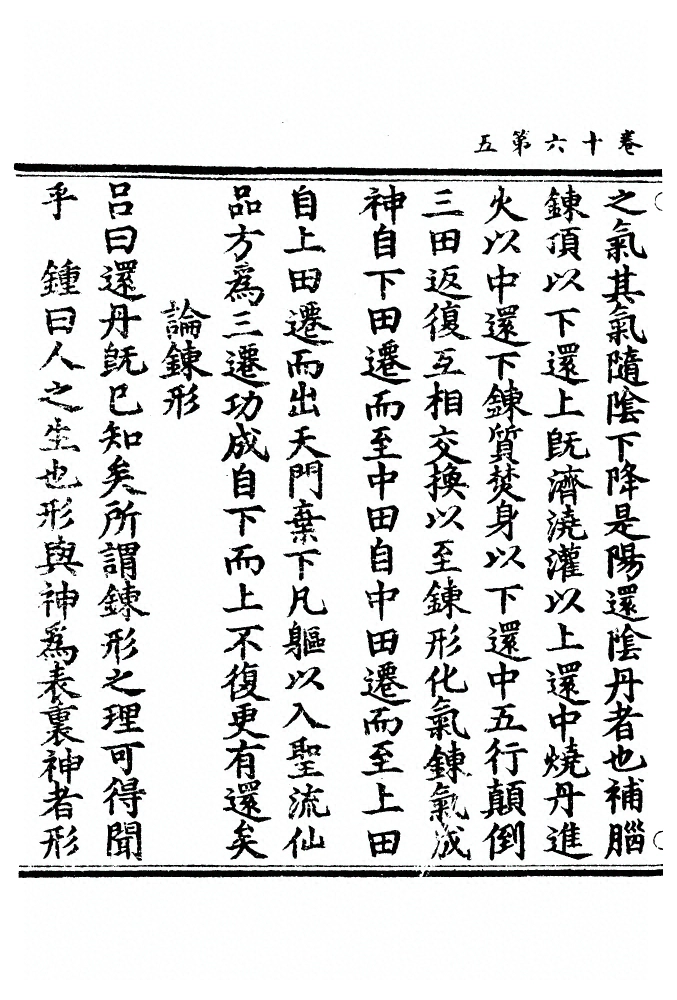 卷十六第五
之氣其氣隨陰下降是陽還陰丹者也補腦
鍊頂以下還上旣濟澆灌以上還中燒丹進
火以中還下鍊質焚身以下還中五行顛倒
三田返復互相交換以至鍊形化氣鍊氣成
神自下田遷而至中田自中田遷而至上田
自上田遷而出天門棄下凡軀以入聖流仙
品方爲三遷功成自下而上不復更有還矣
論鍊形
呂曰還丹旣已知矣所謂鍊形之理可得聞
乎　鍾曰人之生也形與神爲表裏神者形